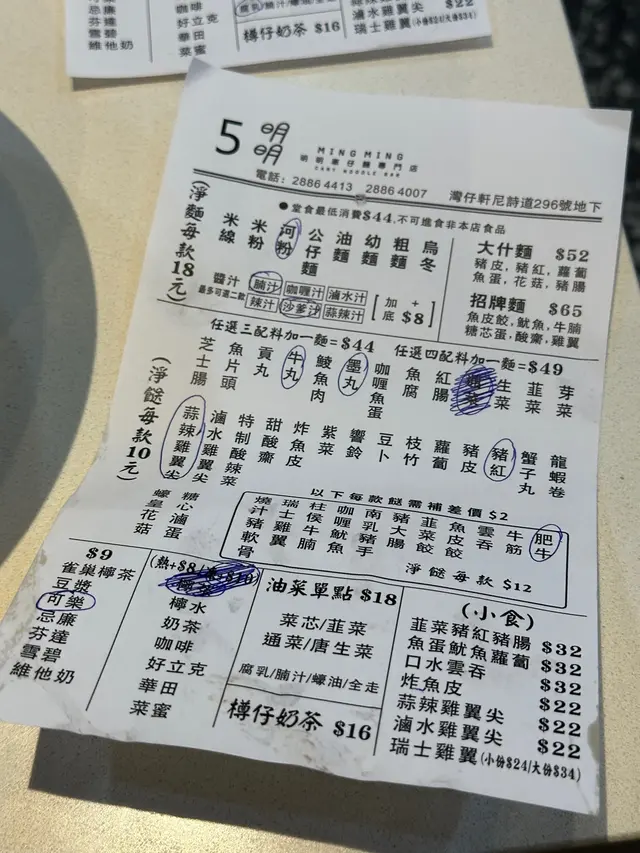 忌廉
芬達
雪碧
維他奶
咖啡
好立克
華田
菜蜜
樽仔奶茶 $16
$22
滷水雞翼尖
瑞士雞翼(小份$24/大份$34)
5 明明
MING MING
明明車仔麵專門店
CART NOODLE BAR
電話: 2886 4413 2886 4007 灣仔軒尼詩道296號地下
●堂食最低消費$44,不可進食非本店食品
(淨麵每款18元)
米線
米粉
河粉
公仔麵
油麵
幼麵
粗麵
烏冬
醬汁
最多可選二款
腩汁 咖喱汁 滷水汁
辣汁 沙爹汁 蒜辣汁
[加+底$8]
大什麵 $52
豬皮,豬紅,蘿蔔
魚蛋,花菇,豬腸
招牌麵 $65
魚皮餃,魷魚,牛腩
糖心蛋,酸齋,雞翼
任選三配料加一麵=$44 任選四配料加一麵=$49
(淨餸每款10元)
芝士腸
魚片頭
貢丸
牛丸
鯪魚肉
墨丸
咖喱魚蛋
魚腐
紅腸
生菜
韮菜
芽菜
蒜辣雞翼尖
滷水雞翼尖
特制酸辣菜
甜酸齋
炸魚皮
紫菜
響鈴
豆卜
枝竹
蘿蔔
豬皮
豬紅
蟹子丸
龍蝦卷
蠔皇花菇
糖心滷蛋
以下每款餸需補差價$2
燒汁豬軟骨
瑞士雞翼
柱侯牛腩
咖喱魷魚
南乳豬手
豬大腸
韮菜餃
魚皮餃
雲吞
牛筋
肥牛
淨餸每款$12
$9
雀巢檸茶
豆漿
可樂
忌廉
芬達
雪碧
維他奶
檸水
奶茶
咖啡
好立克
華田
菜蜜
油菜單點 $18
菜芯/韮菜
通菜/唐生菜
腐乳/腩汁/蠔油/全走
樽仔奶茶 $16
(小食)
韮菜豬紅豬腸 $32
魚蛋魷魚蘿蔔 $32
口水雲吞 $32
炸魚皮 $22
蒜辣雞翼尖 $22
滷水雞翼尖 $22
瑞士雞翼(小份$24/大份$34)